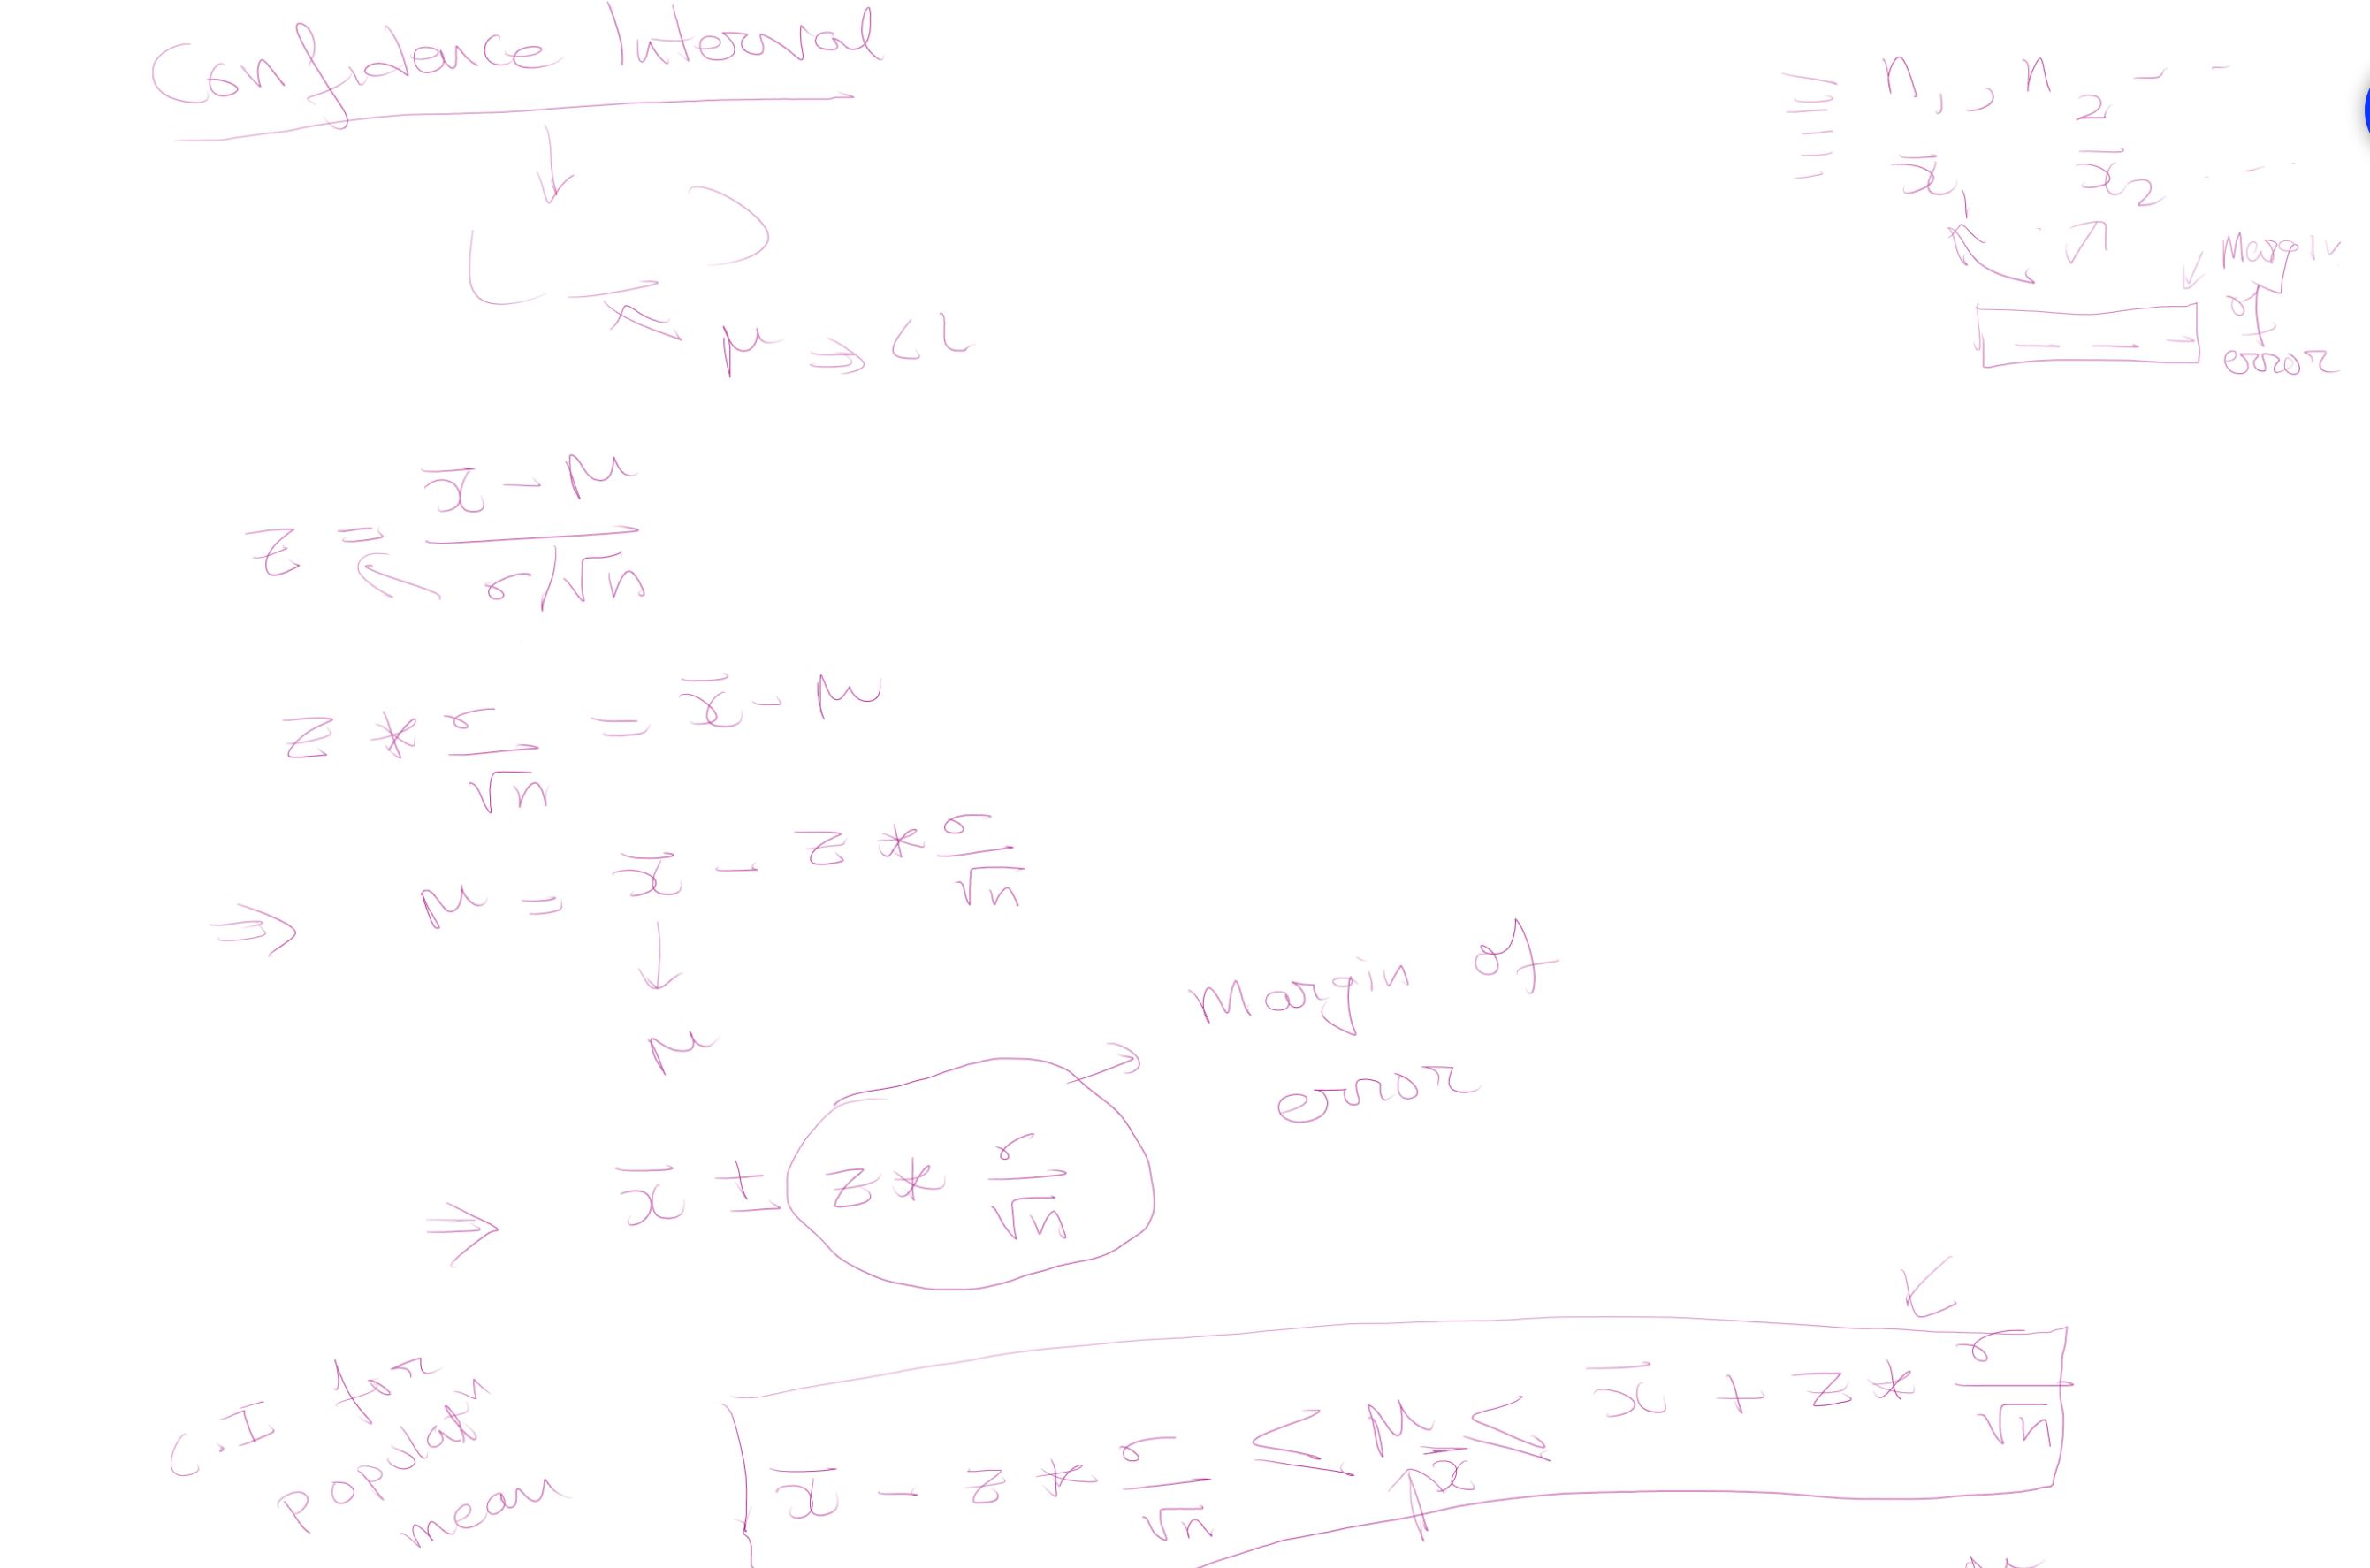 Confidence Interval
n₁, n₂ - -
x̄₁ x̄₂ - - -
Margin
of
error
μ ⇒
z = (x̄ - μ) / (σ/√n)
z * σ/√n = x̄ - μ
⇒ μ = x̄ - z * σ/√n
μ
Margin of
error
⇒ x̄ ± z * σ/√n
C.I for
population
mean
x̄ - z * σ/√n ≤ μ ≤ x̄ + z * σ/√n